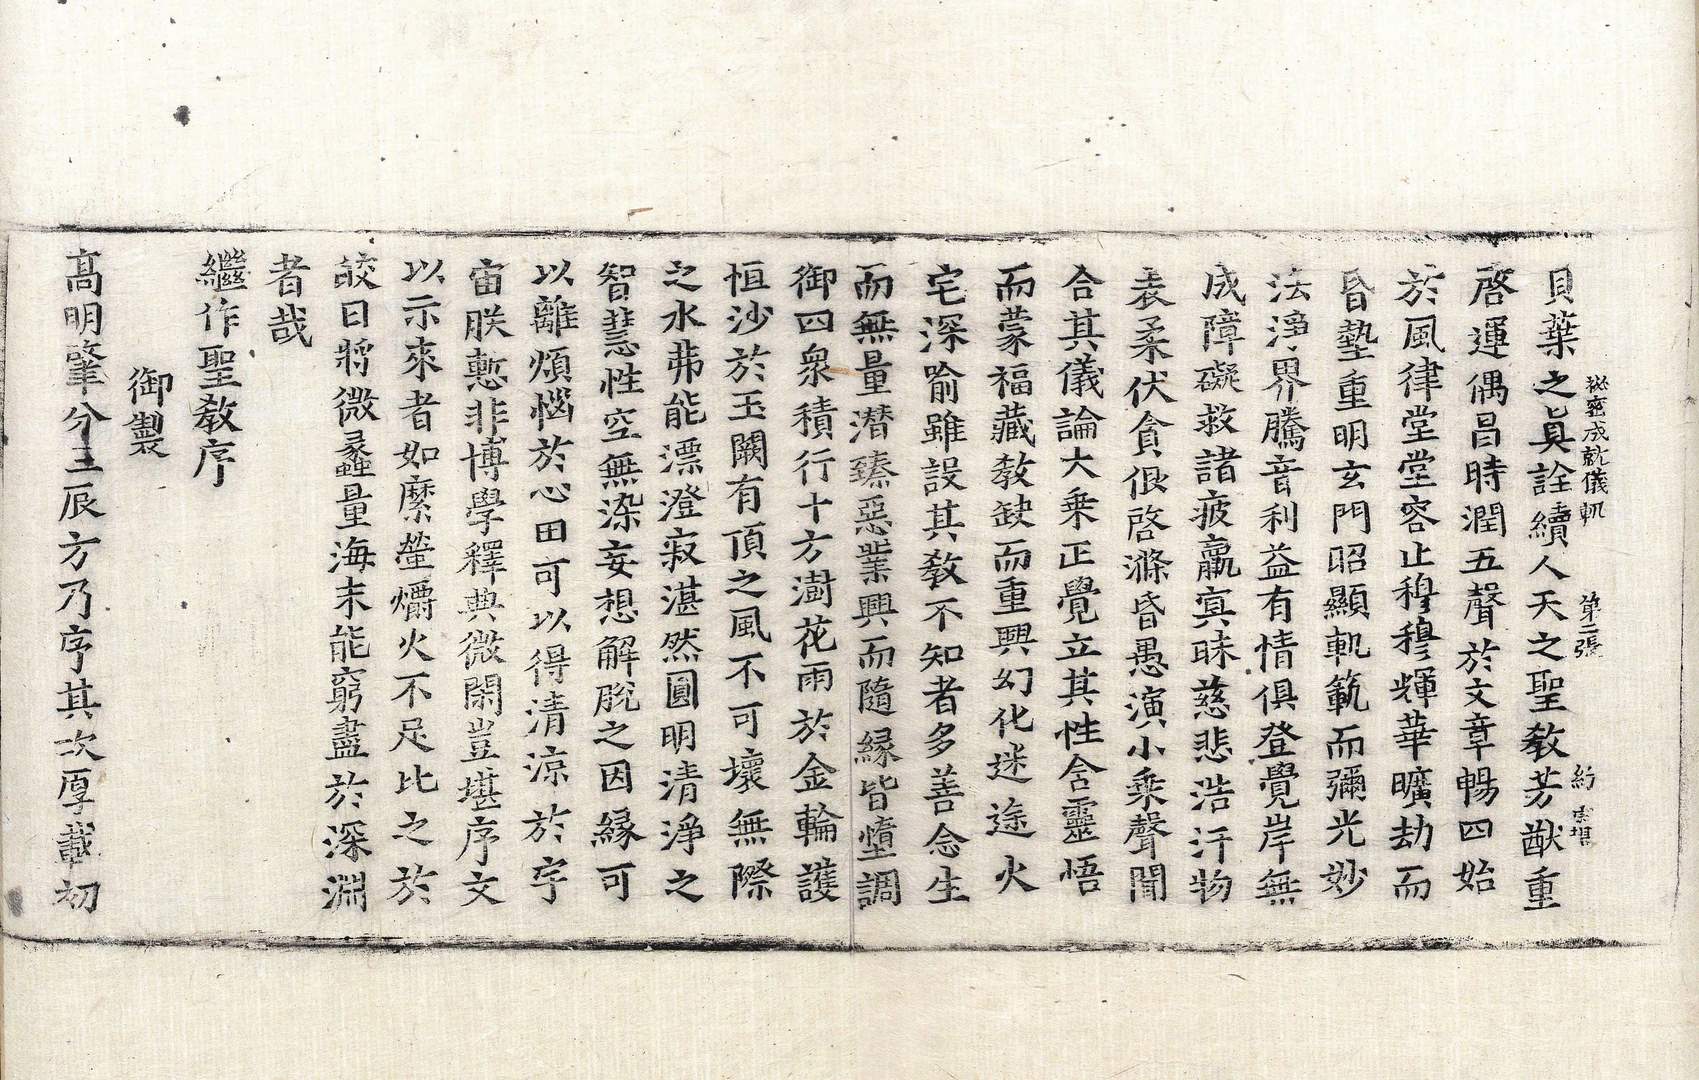 秘密成就儀軌 第二張 紡
貝葉之眞詮續人天之聖教芳猷重
啓運偶昌時潤五聲於文章暢四始
於風律堂堂容止穆穆輝華曠劫而
昏墊重明玄門昭顯軌範而彌光妙
法淨界騰音利益有情俱登覺岸無
成障礙救諸疲羸寘昧慈悲浩汗物
表柔伏貪佷啓滌昏愚演小乘聲聞
合其儀論大乘正覺立其性含靈悟
而蒙福藏教缺而重興幻化迷途火
宅深喻雖設其教不知者多善念生
而無量潛臻惡業興而隨緣皆墮調
御四衆積行十方澍花雨於金輪護
恒沙於玉闕有頂之風不可壞無際
之水弗能漂澄寂湛然圓明清淨之
智慧性空無染妄想解脫之因緣可
以離煩惱於心田可以得清涼於宇
宙朕慙非博學釋典微閑豈堪序文
以示來者如縻螢爝火不足比之於
皎日將微蠡量海未能窮盡於深淵
者哉
繼作聖教序
御製
高明肇分三辰方乃序其次厚載初